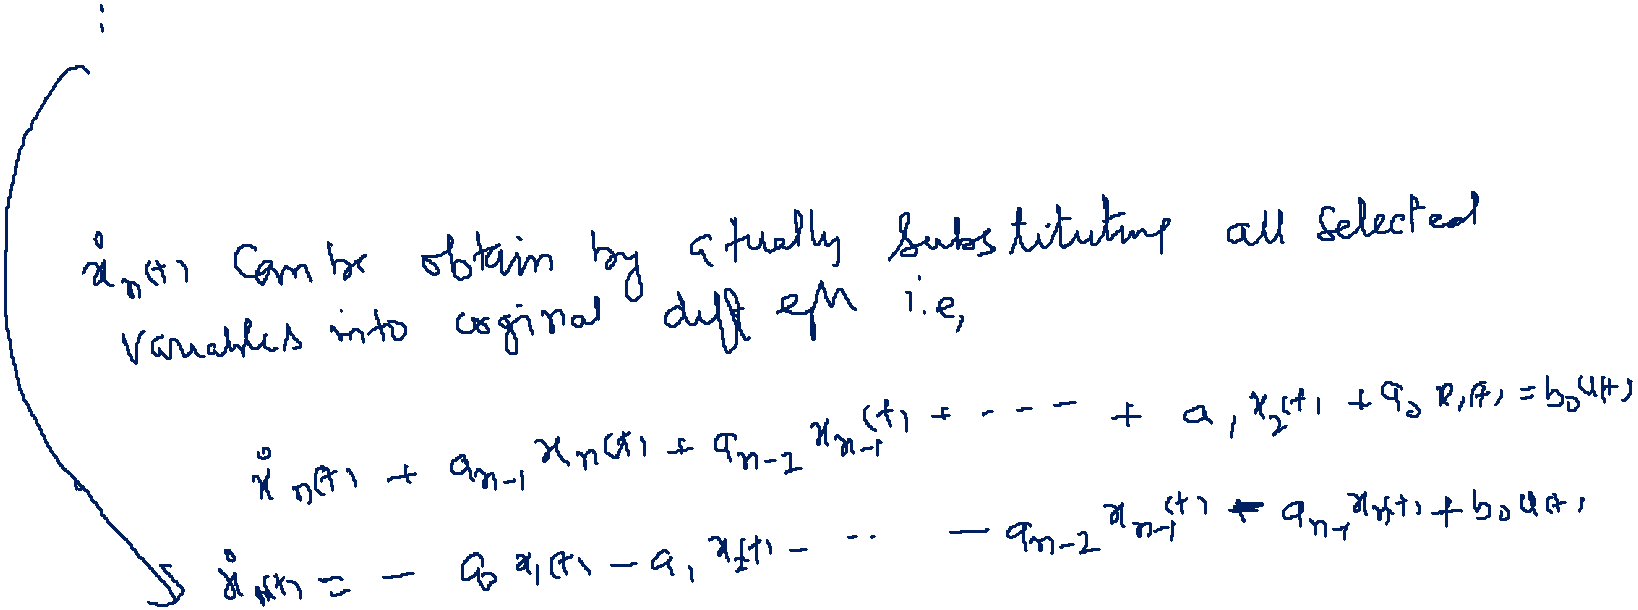 ⋮
ẋₙ(t) Can be obtain by atually substituting all selected
variables into orginal diff eqn i.e,
ẋₙ(t) + aₙ₋₁ xₙ(t) + aₙ₋₂ xₙ₋₁(t) + - - - + a₁ x₂(t) + a₀ x₁(t) = b₀u(t)
ẋₙ(t) = - a₀ x₁(t) - a₁ x₂(t) - .. - aₙ₋₂ xₙ₋₁(t) - aₙ₋₁ xₙ(t) + b₀ u(t)